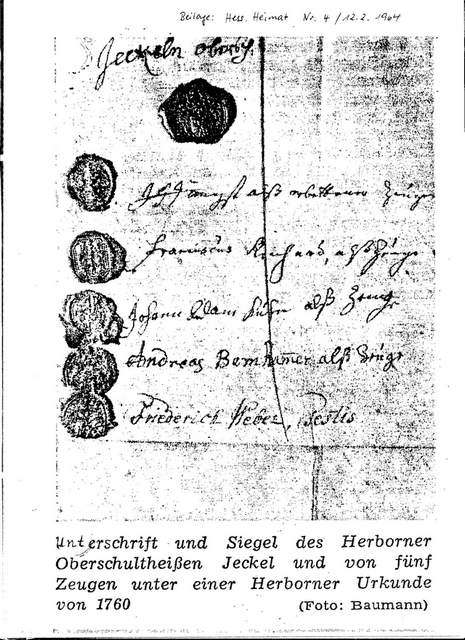 Beilage: Hess. Heimat Nr. 4 / 12.2.1964
Jeckeln
alß Zeuge
Franciscus Reichard, alß Zeuge
Johann Adam alß Zeuge
Andreas alß Zeuge
Friederich Weber, Testis
Unterschrift und Siegel des Herborner
Oberschultheißen Jeckel und von fünf
Zeugen unter einer Herborner Urkunde
von 1760 (Foto: Baumann)